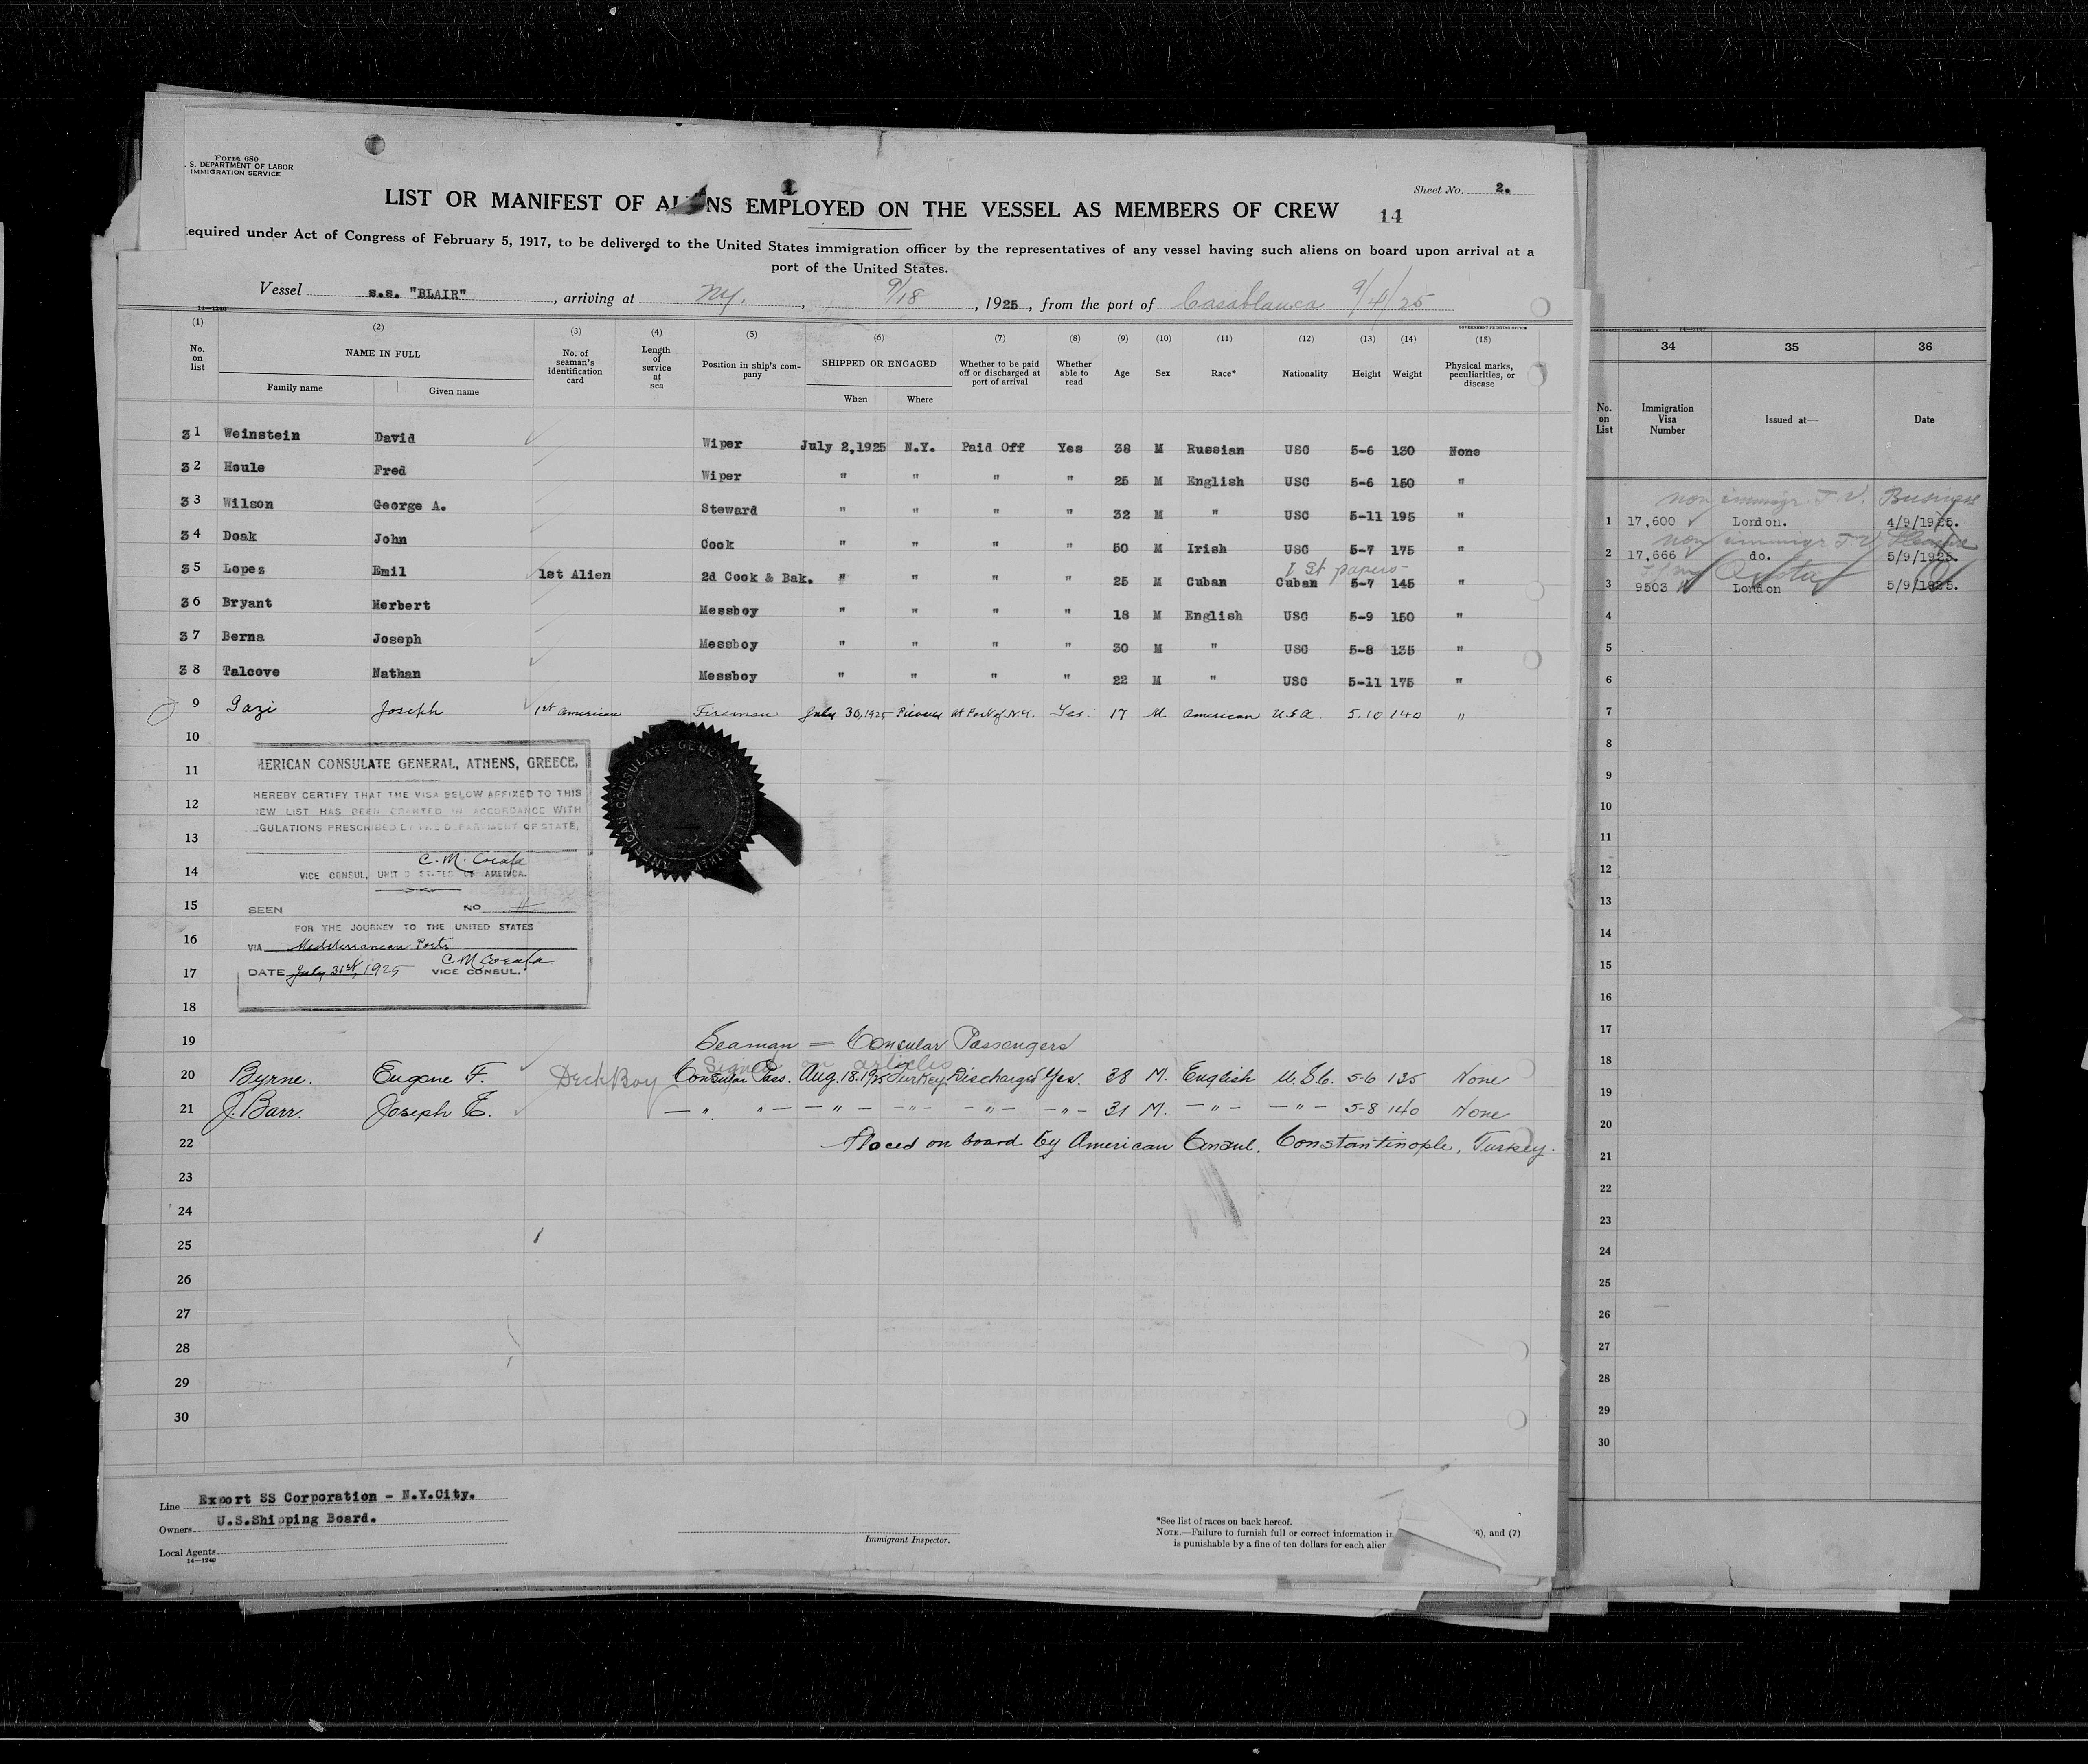 Form 680
S. DEPARTMENT OF LABOR
IMMIGRATION SERVICE
Sheet No. 2.
LIST OR MANIFEST OF ALIENS EMPLOYED ON THE VESSEL AS MEMBERS OF CREW 14
equired under Act of Congress of February 5, 1917, to be delivered to the United States immigration officer by the representatives of any vessel having such aliens on board upon arrival at a
port of the United States.
Vessel s.s. "BLAIR" , arriving at N.Y. , 9/18 , 1925 , from the port of Casablanca 9/4/25
14—1240
GOVERNMENT PRINTING OFFICE
(1) (2) (3) (4) (5) (6) (7) (8) (9) (10) (11) (12) (13) (14) (15)
No. on list NAME IN FULL Family name Given name No. of seaman's identification card Length of service at sea Position in ship's company SHIPPED OR ENGAGED When Where Whether to be paid off or discharged at port of arrival Whether able to read Age Sex Race* Nationality Height Weight Physical marks, peculiarities, or disease
31 Weinstein David Wiper July 2,1925 N.Y. Paid Off Yes 38 M Russian USC 5-6 130 None
32 Houle Fred Wiper " " " " 25 M English USC 5-6 150 "
33 Wilson George A. Steward " " " " 32 M " USC 5-11 195 "
34 Doak John Cook " " " " 50 M Irish USC 5-7 175 "
1 St papers
35 Lopez Emil 1st Alien 2d Cook & Bak. " " " " 25 M Cuban Cuban 5-7 145 "
36 Bryant Herbert Messboy " " " " 18 M English USC 5-9 150 "
37 Berna Joseph Messboy " " " " 30 M " USC 5-8 135 "
38 Talcove Nathan Messboy " " " " 22 M " USC 5-11 175 "
9 Gazi Joseph 1st American Fireman July 30,1925 Piraeus At Port of N.Y. Yes 17 M American U.S.A. 5.10 140 "
10
11
12
13
14
15
16
17
18
MERICAN CONSULATE GENERAL, ATHENS, GREECE.
HEREBY CERTIFY THAT THE VISA BELOW AFFIXED TO THIS
EW LIST HAS BEEN GRANTED IN ACCORDANCE WITH
EGULATIONS PRESCRIBED BY THE DEPARTMENT OF STATE.
C. M.
VICE CONSUL, UNITED STATES OF AMERICA.
SEEN NO 11
FOR THE JOURNEY TO THE UNITED STATES
VIA Mediterranean Ports
DATE July 31st, 1925 C. M.
VICE CONSUL.
AMERICAN CONSULATE GENERAL
19 Seaman = Consular Passengers
Signed on articles
20 Byrne. Eugene F. Deck Boy Consular Pass. Aug. 18. 1925 Turkey Discharged Yes. 38 M. English U.S.C. 5-6 135 None
21 J. Barr. Joseph E. — " " — — " — — " — — " — — " — 31 M. — " — — " — 5-8 140 None
22 Placed on board by American Consul. Constantinople, Turkey.
23
24
25
26
27
28
29
30
Line Export SS Corporation - N.Y.City.
Owners U.S.Shipping Board.
Local Agents
14—1240
Immigrant Inspector.
*See list of races on back hereof.
NOTE.—Failure to furnish full or correct information in (6), and (7)
is punishable by a fine of ten dollars for each alien
34 35 36
No. on List Immigration Visa Number Issued at— Date
non immigr. T.V. Business
1 17,600 London. 4/9/1925.
non immigr T.V. Pleasure
2 17,666 do. 5/9/1925.
3 9503 London 5/9/1925.
4
5
6
7
8
9
10
11
12
13
14
15
16
17
18
19
20
21
22
23
24
25
26
27
28
29
30